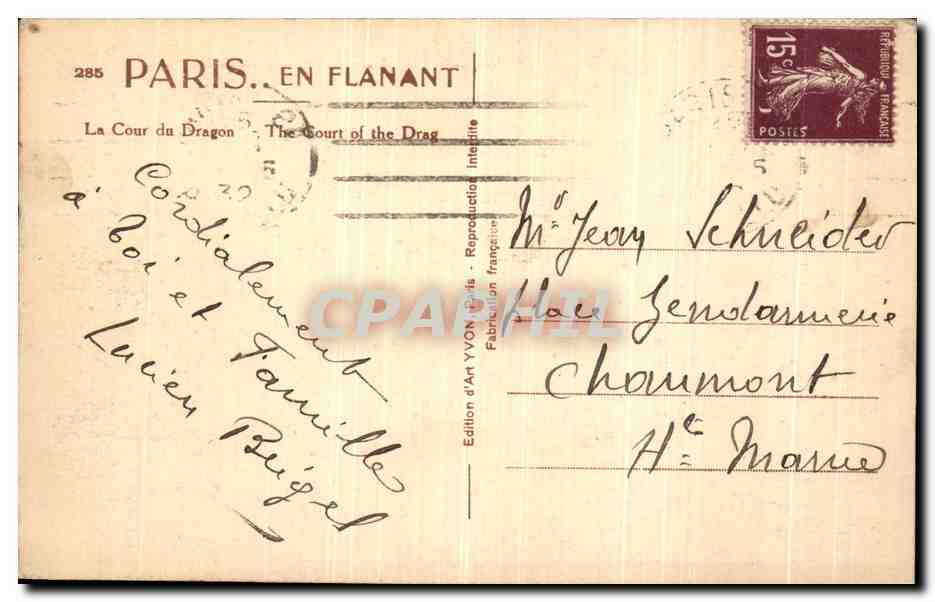 285 PARIS.. EN FLANANT
La Cour du Dragon - The Court of the Drag
Cordialement
à toi et Famille
Lucien
Edition d'Art YVON, Paris - Reproduction interdite
Fabrication française
15c
RÉPUBLIQUE FRANÇAISE
POSTES
Mr Jean Schneider
place Gendarmerie
Chaumont
Hte Marne
CPAPHIL